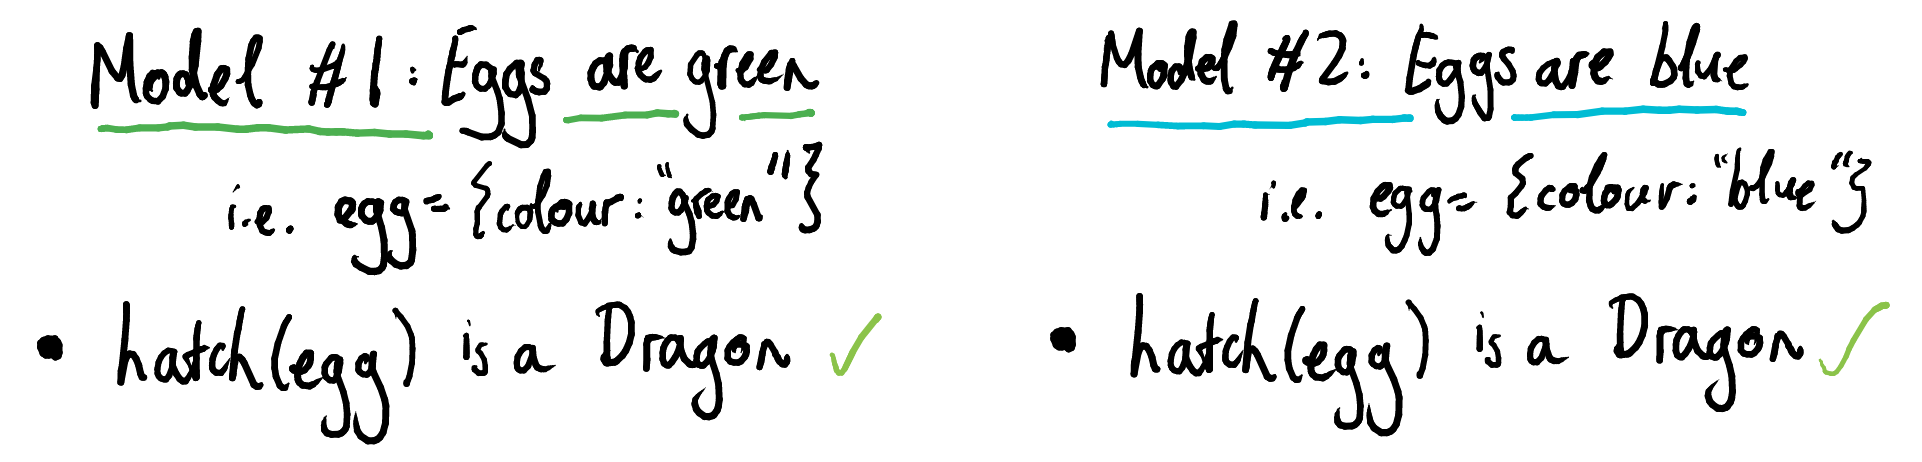 Model #1: Eggs are green
i.e. egg = {colour: "green"}
• hatch(egg) is a Dragon ✓
Model #2: Eggs are blue
i.e. egg = {colour: "blue"}
• hatch(egg) is a Dragon ✓